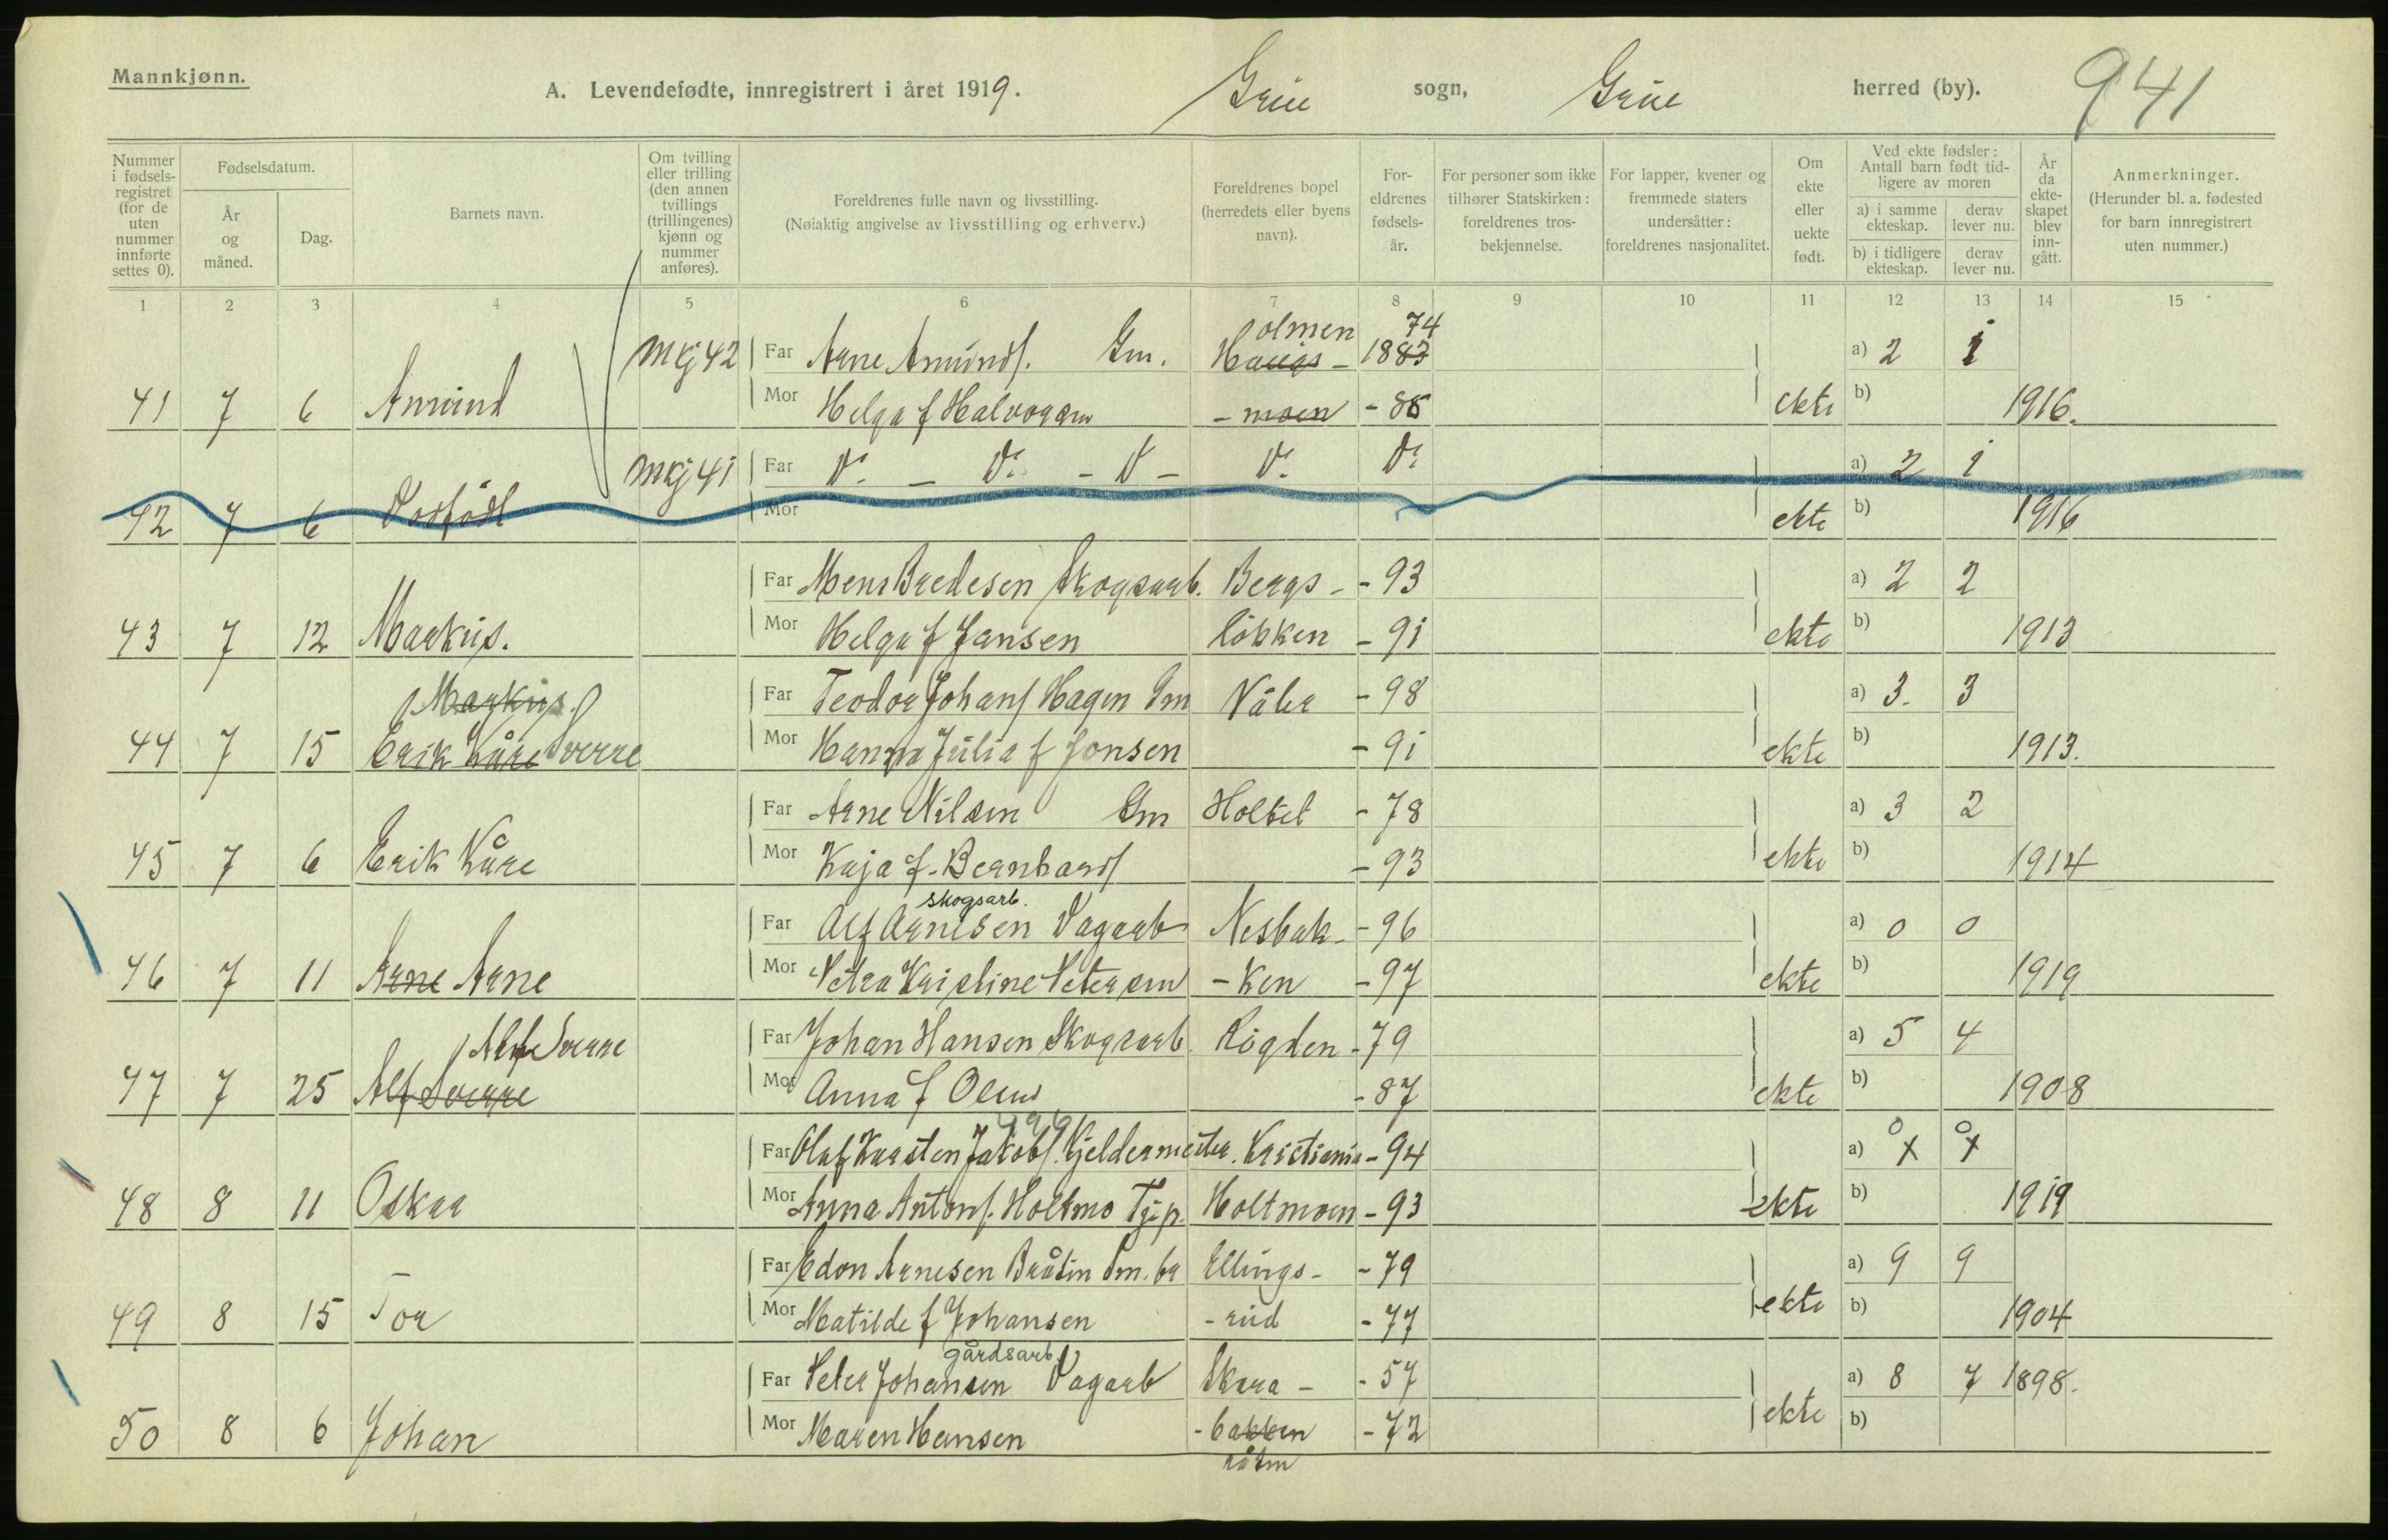 Mannkjønn.
A. Levendefødte, innregistrert i året 1919. Grue sogn, Grue herred (by). 941
Nummer i fødselsregistret (for de uten nummer innførte settes 0).
Fødselsdatum.
År og måned.
Dag.
Barnets navn.
Om tvilling eller trilling (den annen tvillings (trillingenes) kjønn og nummer anføres).
Foreldrenes fulle navn og livsstilling.
(Nøiaktig angivelse av livsstilling og erhverv.)
Foreldrenes bopel (herredets eller byens navn).
Foreldrenes fødselsår.
For personer som ikke tilhører Statskirken: foreldrenes trosbekjennelse.
For lapper, kvener og fremmede staters undersåtter: foreldrenes nasjonalitet.
Om ekte eller uekte født.
Ved ekte fødsler: Antall barn født tidligere av moren
a) i samme ekteskap. derav lever nu.
b) i tidligere ekteskap. derav lever nu.
År da ekteskapet blev inngått.
Anmerkninger.
(Herunder bl. a. fødested for barn innregistrert uten nummer.)
1 2 3 4 5 6 7 8 9 10 11 12 13 14 15
olmen 74
Mkj 42 Far Arne Amunds. Gm. Haugs- 1883 a) 2 1
41 7 6 Amund Mor Helga f Halvorsen -moen - 85 ekte b) 1916.
Mkj 41 Far D: - D: - D - D: D: a) 2 1
42 7 6 Dødfødt Mor ekte b) 1916
Far Mens Bredesen Skogsarb. Bergs- - 93 a) 2 2
43 7 12 Markus. Mor Helga f Jansen løkken - 91 ekte b) 1913
Markus. Far Teodor Johans Hagen Gm Våler - 98 a) 3. 3
44 7 15 Erik Kåre Sverre Mor Hanna Julia f Jonsen - 91 ekte b) 1913.
Far Arne Nilsen Gm Holtet - 78 a) 3 2
45 7 6 Erik Kåre Mor Kaja f. Bernhards - 93 ekte b) 1914
skogsarb.
Far Alf Arnesen Dagarb Nesbak- - 96 a) 0 0
46 7 11 Arne Arne Mor Petra Kristine Petersen -ken - 97 ekte b) 1919
Alf Sverre Far Johan Hansen Skogsarb. Rögden - 79 a) 5 4
47 7 25 Alf Sverre Mor Anna f Olsen - 87 ekte b) 1908
Far Olaf Karsten Jakobs. Kjeldermester. Kristiania - 94 a) 0 x 0 x
48 8 11 Oskar Mor Anna Antons. Holtmo Tj.p. Holtmoen - 93 ekte b) 1919
Far Edon Arnesen Bråten Gm. br Ellings- - 79 a) 9 9
49 8 15 Tor Mor Matilde f Johansen -rud - 77 ekte b) 1904
gårdsarb.
Far Peter Johansen Dagarb Skara- - 57 a) 8 7 1898.
50 8 6 Johan Mor Maren Hansen -bakken - 72 ekte b)
råten